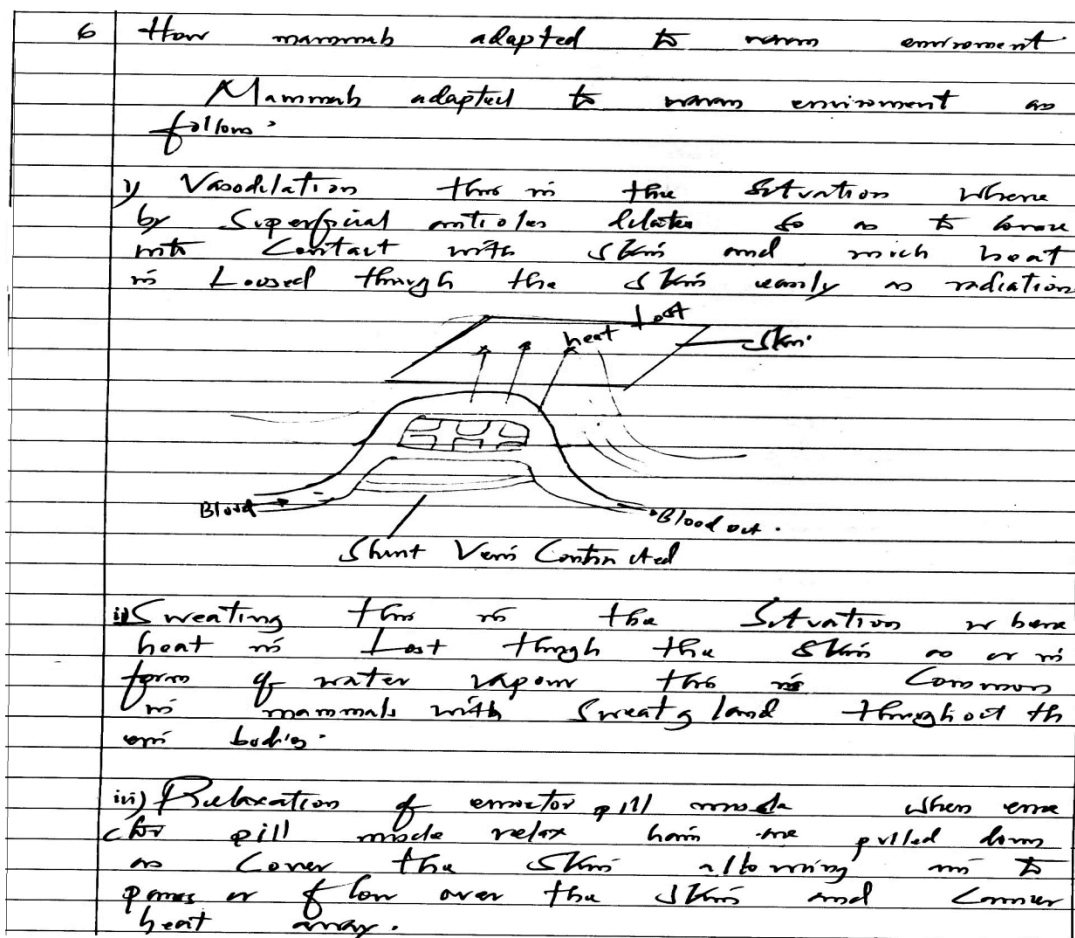 6 How mammals adapted to warm enviroment
Mammals adapted to warm enviroment as
follows.
i) Vasodilation this is the situation where
by superficial arterioles dilates so as to
into contact with skin and much heat
is Loosed through the skin easily as radiation
heat lost
Skin.
Blood
Blood out.
Shunt Vein Contracted
ii) Sweating this is the situation where
heat is Lost through the skin as or in
form of water vapour this is Common
in mammals with sweat gland throughout th
eir bodies.
iii) Relaxation of errector pill muscle when erre
ctor pill muscle relax hair are pulled down
as cover the skin allowing air to
or flow over the skin and
heat away.